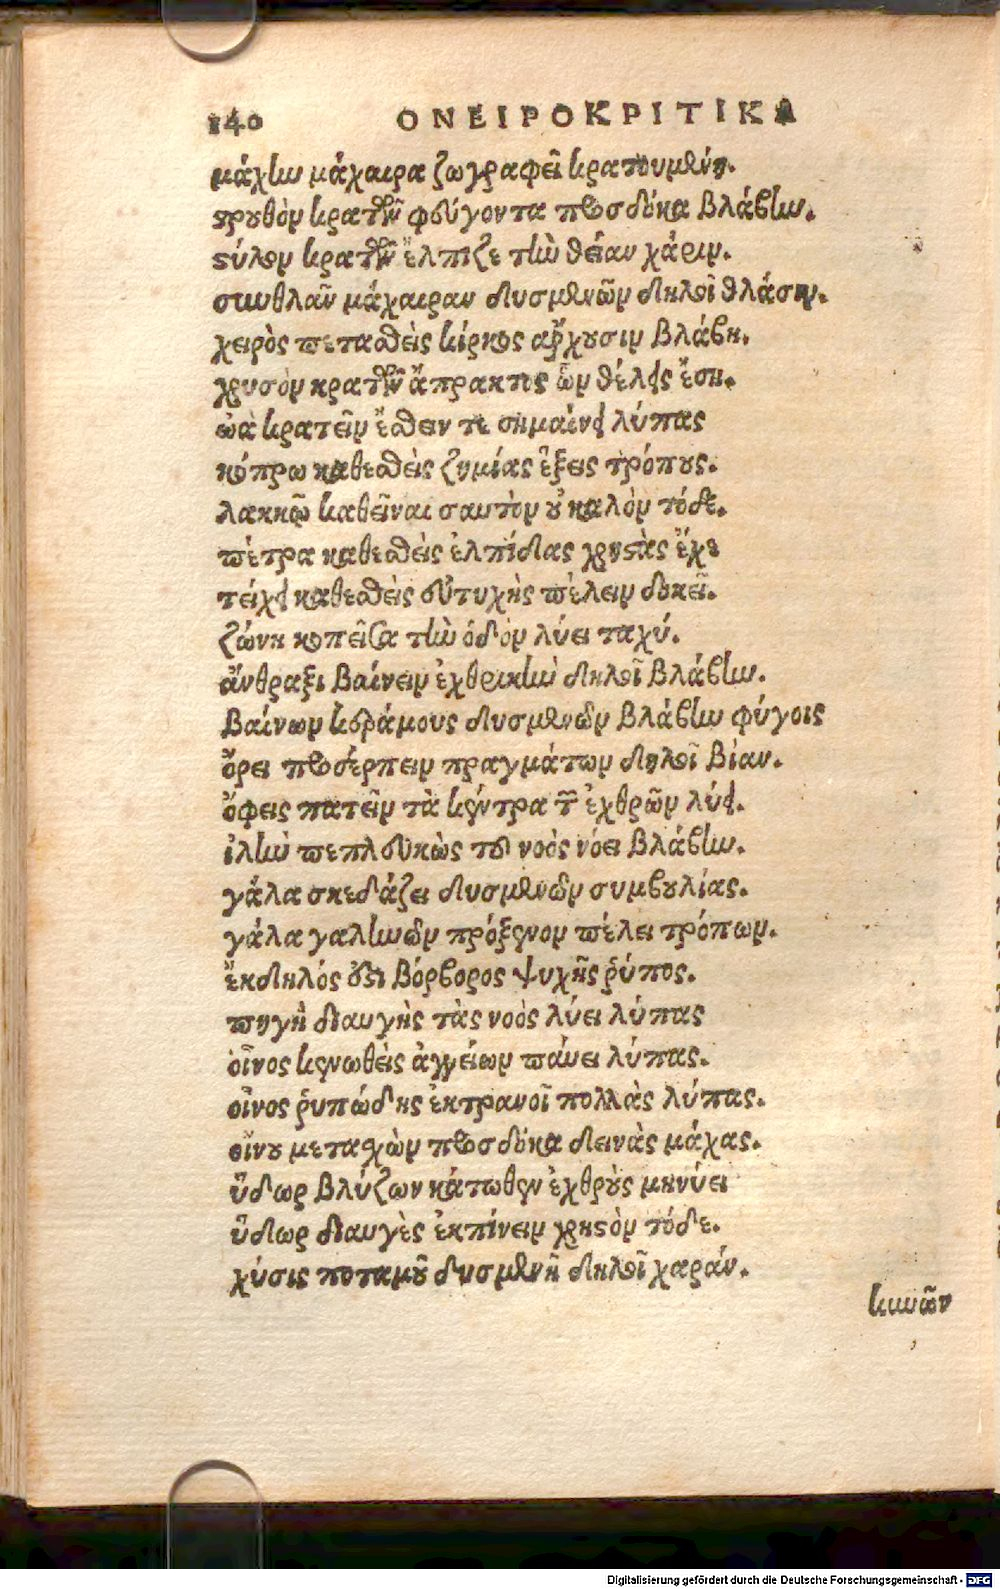 140 ΟΝΕΙΡΟΚΡΙΤΙΚΑ
μάχην μάχαιρα ζωγραφεῖ κρατουμένη.
στρουθὸν κρατῶν φεύγοντα προσδόκα βλάβην.
στύλον κρατῶν ἔλπιζε τὴν θείαν χάριν.
συνθλᾶν μάχαιραν δυσμενῶν δηλοῖ θλάσιν.
χειρὸς πετασθεὶς κίρκος ἄρχουσιν βλάβη.
χρυσὸν κρατῶν ἄπρακτος ὧν θέλεις ἔσῃ.
ὠὰ κρατεῖν ἔσθειν τε σημαίνει λύπας
κόπρω καθεσθεὶς ζημίας ἕξεις τρόπους.
λακκῷ καθεῖναι σαυτὸν οὐ καλὸν τόδε.
πέτρα καθεσθεὶς ἐλπίδας χρηστὰς ἔχε
τείχει καθεσθεὶς εὐτυχὴς πέλειν δοκεῖ.
ζώνη κοπεῖσα τὴν ὁδὸν λύει ταχύ.
ἄνθραξι βαίνειν ἐχθρικὴν δηλοῖ βλάβην.
βαίνων κεράμους δυσμενῶν βλάβην φύγοις
ὄρει προσέρπειν πραγμάτων δηλοῖ βίαν.
ὄφεις πατεῖν τὰ κέντρα τῶν ἐχθρῶν λύει.
ἰλὺν πεπλευκὼς τοῦ νοὸς νόει βλάβην.
γάλα σκεδάζει δυσμενῶν συμβουλίας.
γάλα γαληνῶν πρόξενον πέλει τρόπων.
ἔκδηλός ἐστι βόρβορος ψυχῆς ῥύπος.
πηγὴ διαυγὴς τὰς νοὸς λύει λύπας
οἶνος κενωθεὶς ἀγγείων παύει λύπας.
οἶνος ῥυπώδης ἐκτρανοῖ πολλὰς λύπας.
οἴνου μετασχὼν προσδόκα δεινὰς μάχας.
ὕδωρ βλύζων κάτωθεν ἐχθροὺς μηνύει
ὕδωρ διαυγὲς ἐκπίνειν χρηστὸν τόδε.
χύσις ποταμοῦ δυσμενῆ δηλοῖ χαράν.
κινῶν
Digitalisierung gefördert durch die Deutsche Forschungsgemeinschaft - DFG